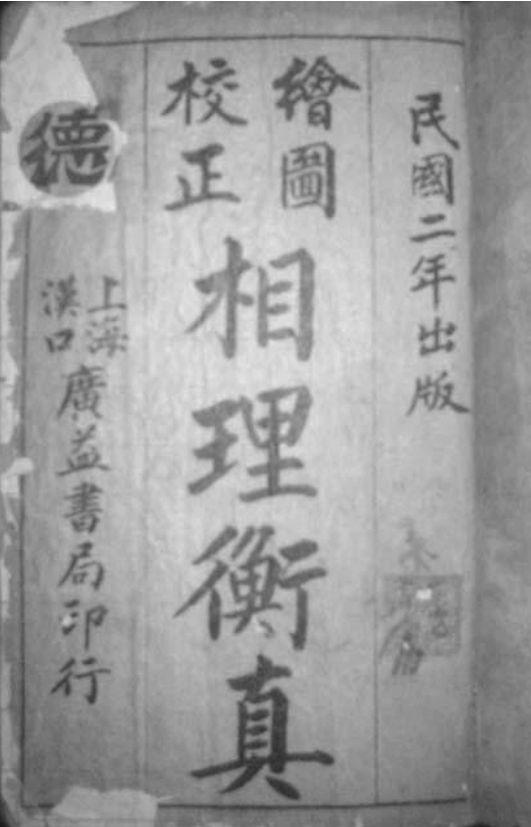 民國二年出版
繪圖
校正
相理衡真
上海
漢口
廣益書局印行
德